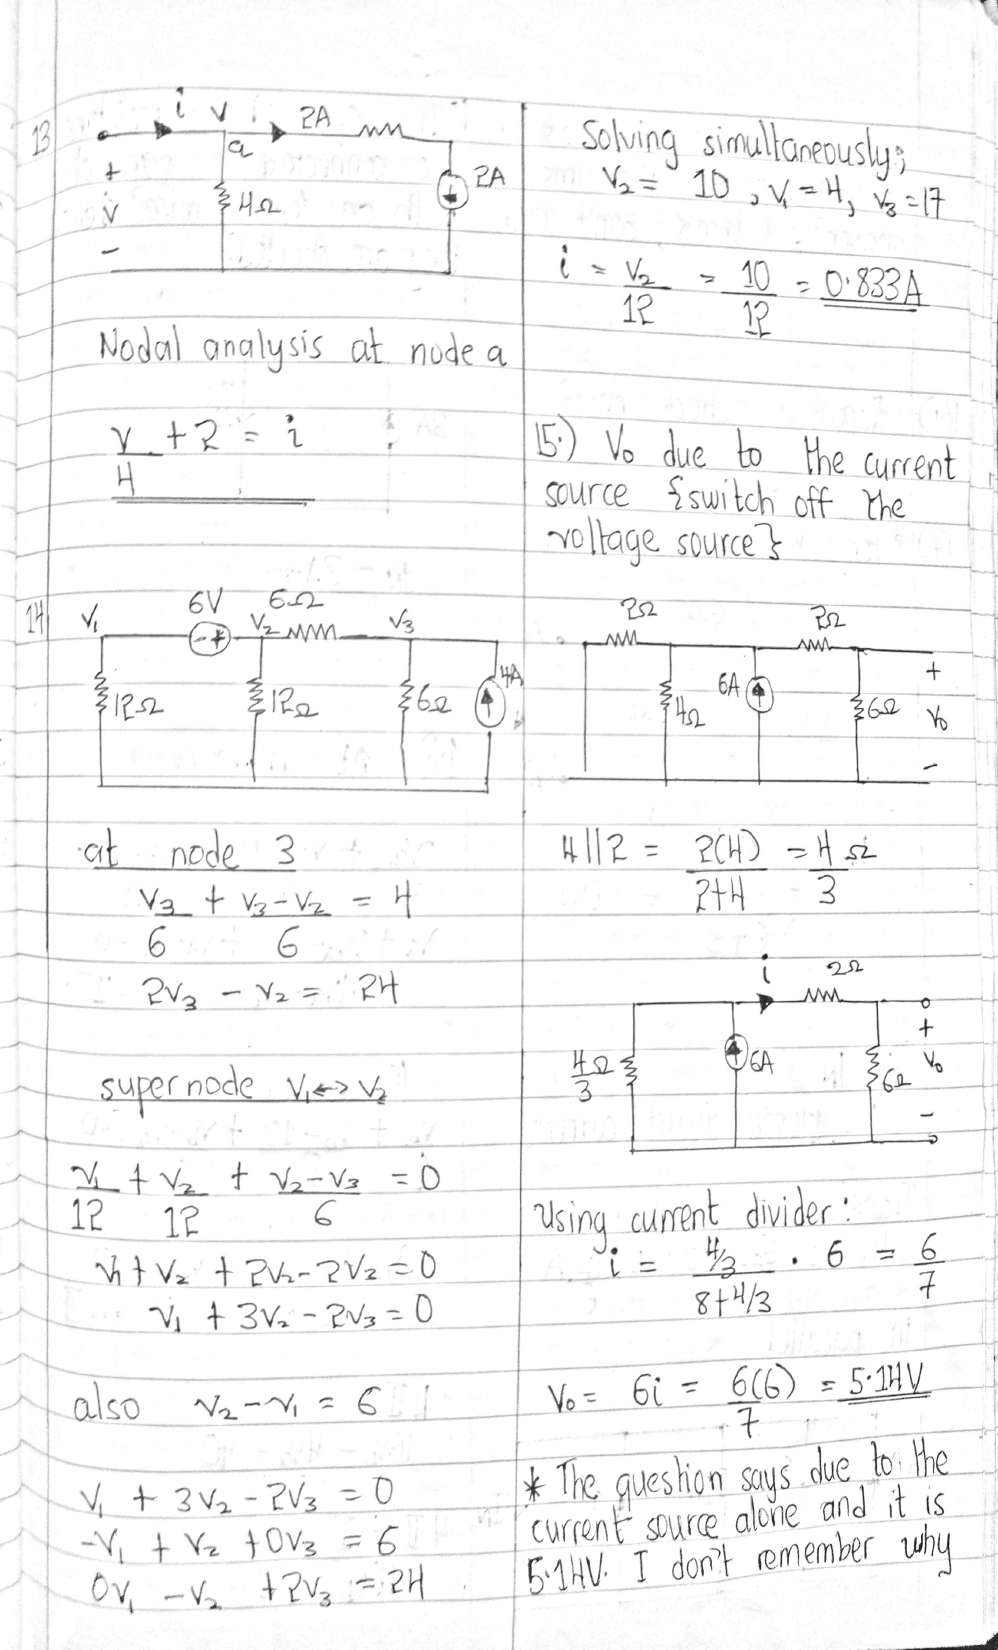 13
i V 2A
a
+
4Ω
2A
v
-
Nodal analysis at node a
v/4 + 2 = i
14
V₁ 6V V₂ 6Ω V₃
- +
12Ω 12Ω 6Ω 4A
at node 3
V₃/6 + (V₃-V₂)/6 = 4
2V₃ - V₂ = 24
supernode V₁↔V₂
V₁/12 + V₂/12 + (V₂-V₃)/6 = 0
V₁ + V₂ + 2V₂ - 2V₂ = 0
V₁ + 3V₂ - 2V₃ = 0
also V₂ - V₁ = 6
V₁ + 3V₂ - 2V₃ = 0
-V₁ + V₂ + 0V₃ = 6
0V₁ - V₂ + 2V₃ = 24
Solving simultaneously;
V₂ = 10, V₁ = 4, V₃ = 17
i = V₂/12 = 10/12 = 0.833A
15.) V₀ due to the current
source {switch off the
voltage source}
2Ω 2Ω
4Ω 6A 6Ω
+
V₀
-
4||2 = 2(4)/(2+4) = 4/3 Ω
i 2Ω
4/3 Ω 6A 6Ω
+
V₀
-
Using current divider:
i = (4/3)/(8+4/3) . 6 = 6/7
V₀ = 6i = 6(6)/7 = 5.14V
* The question says due to the
current source alone and it is
5.14V. I don't remember why